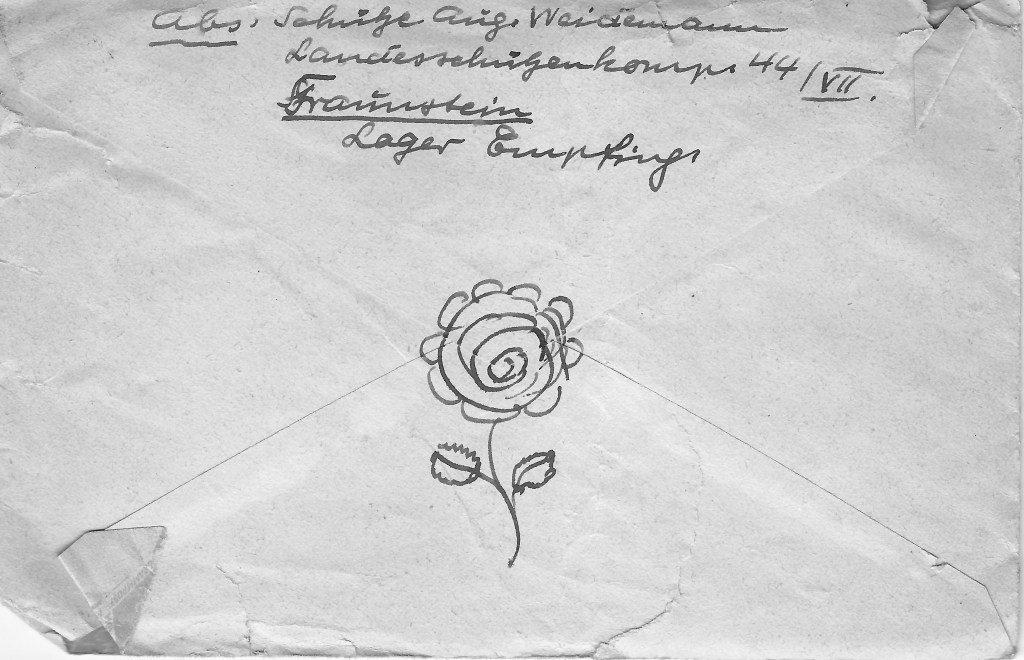 Abs. Schütze Aug. Weidemann
Landesschützenkomp. 44/VII.
Traunstein
Lager Empfing.